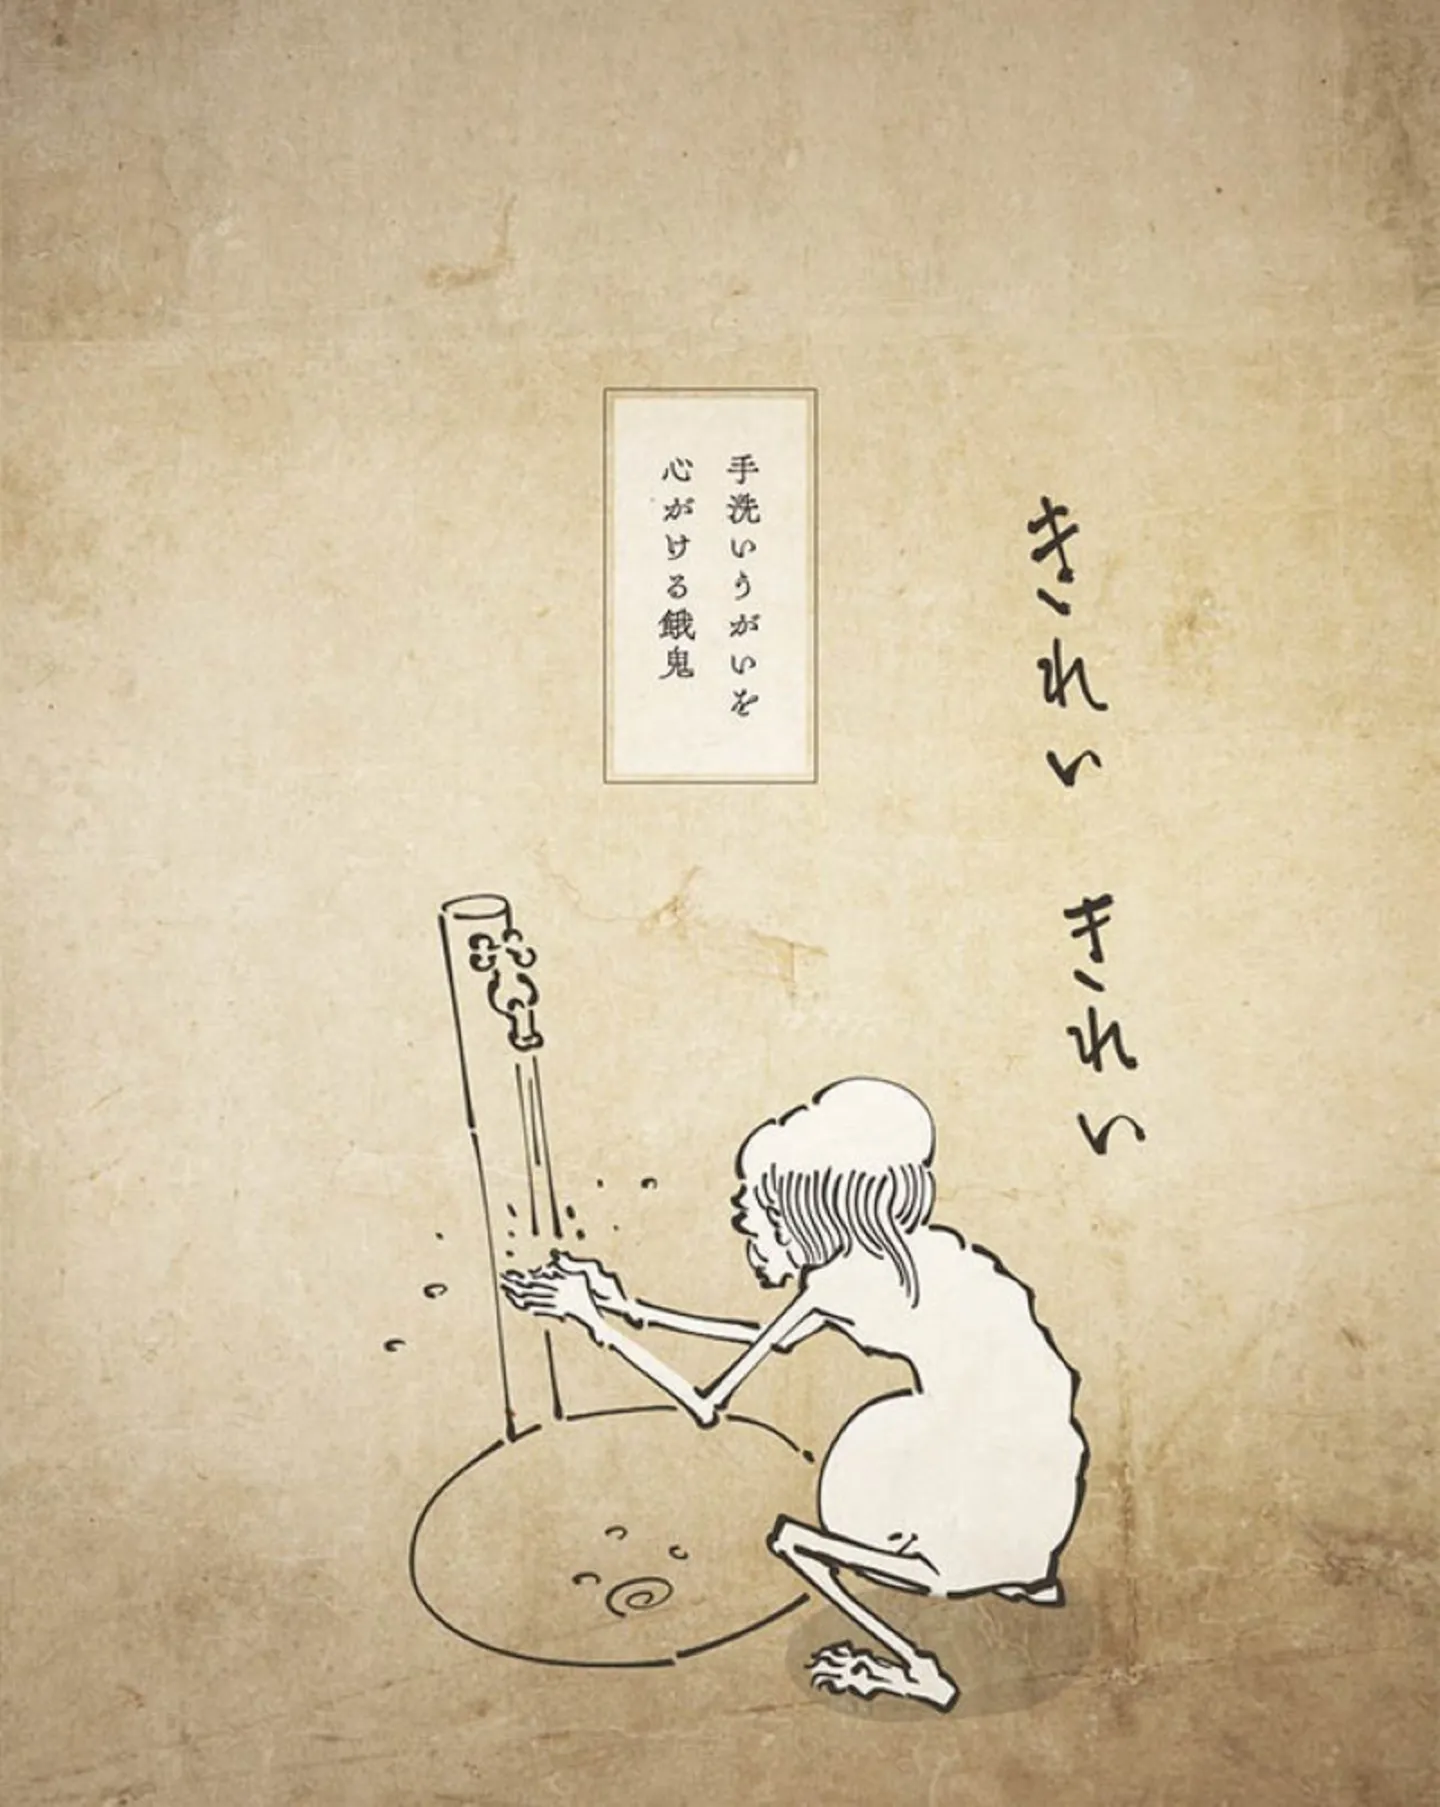 きれい きれい
手洗いうがいを
心がける餓鬼